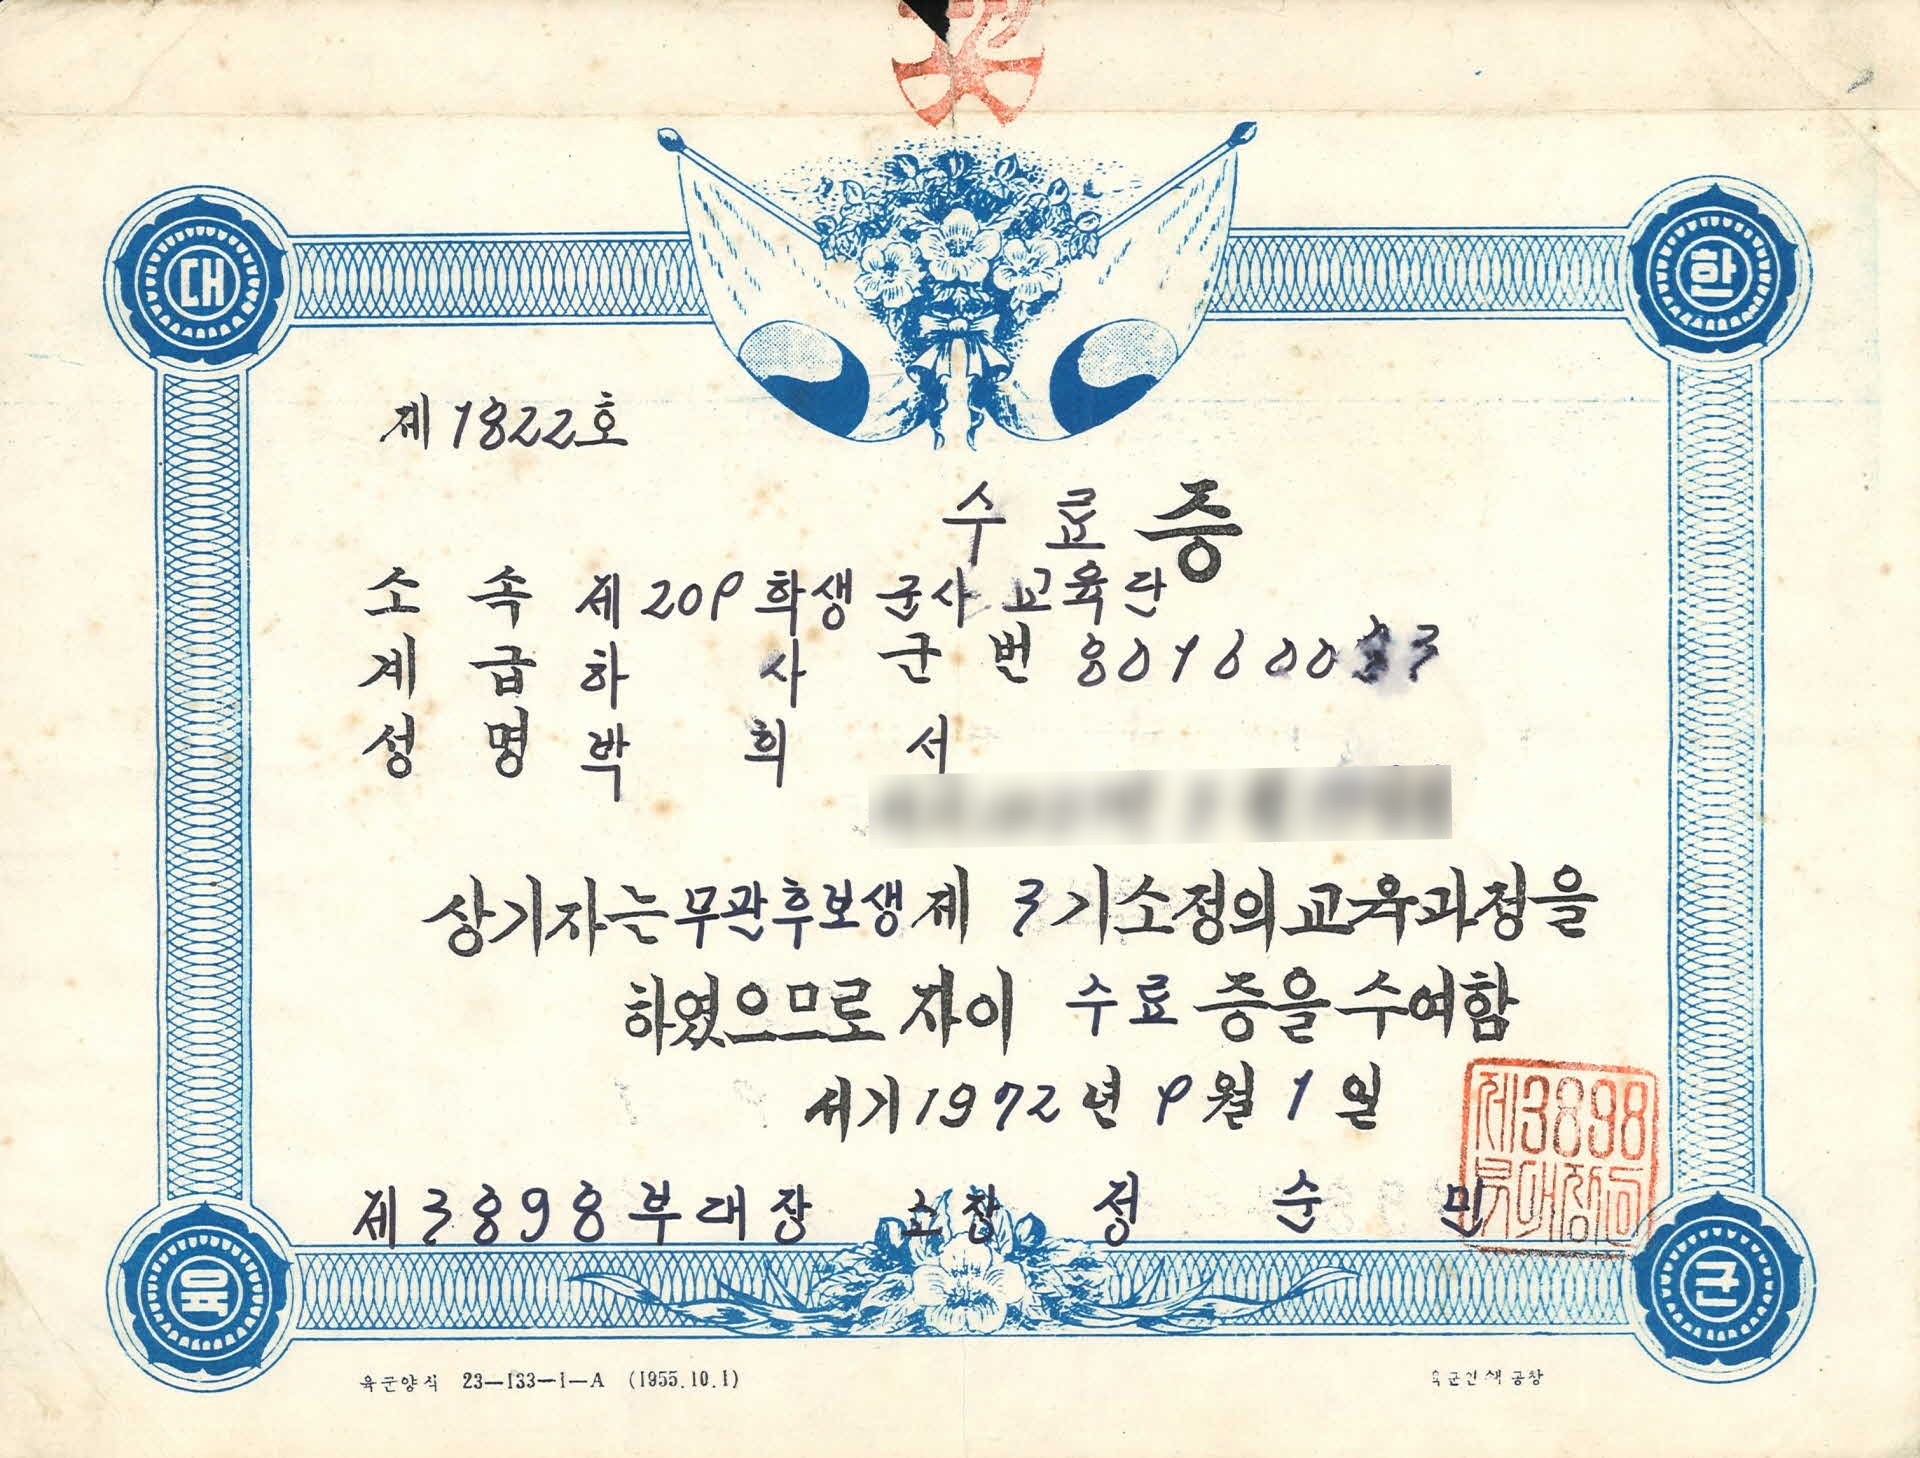 대 한
제 1822 호
수 료 증
소 속 제 209 학생 군사 교육단
계 급 하 사 군 번 801600
성 명 박 희 서
상기자는 무관후보생 제 3 기 소정의 교육과정을
하였으므로 자이 수료 증을 수여함
서기 1972 년 9 월 1 일
제 3898 부대장 소장 정 순 민
제3898
부대장인
육 군
육군양식 23—133—1—A (1955.10.1)
육군인쇄공창